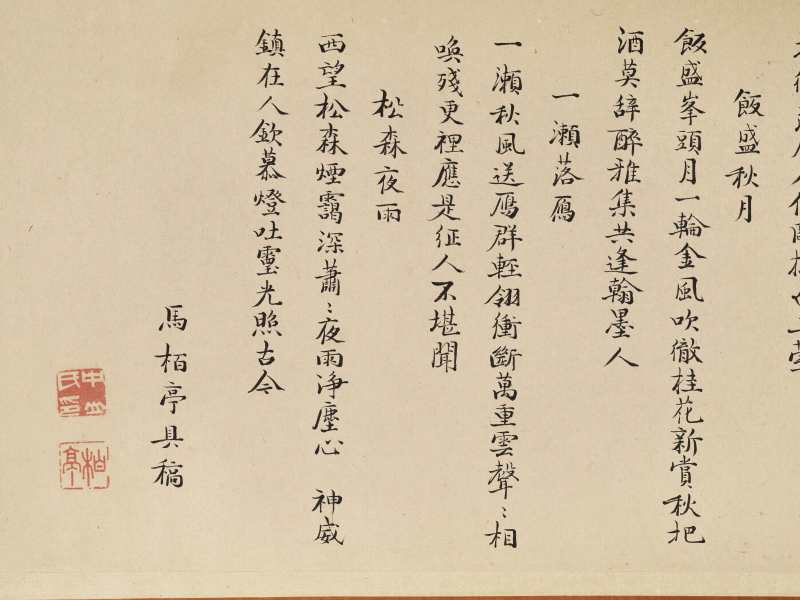 飯盛秋月
飯盛峯頭月一輪金風吹徹桂花新賞秋把
酒莫辞酔雅集共逢翰墨人
一瀬落鴈
一瀬秋風送鴈群輕翎衝斷萬重雲聲〻相
喚殘更裡應是征人不堪聞
松森夜雨
西望松森煙靄深蕭〻夜雨淨塵心 神威
鎮在人欽慕燈吐靈光照古今
馬栢亭具稿
中山氏
栢亭